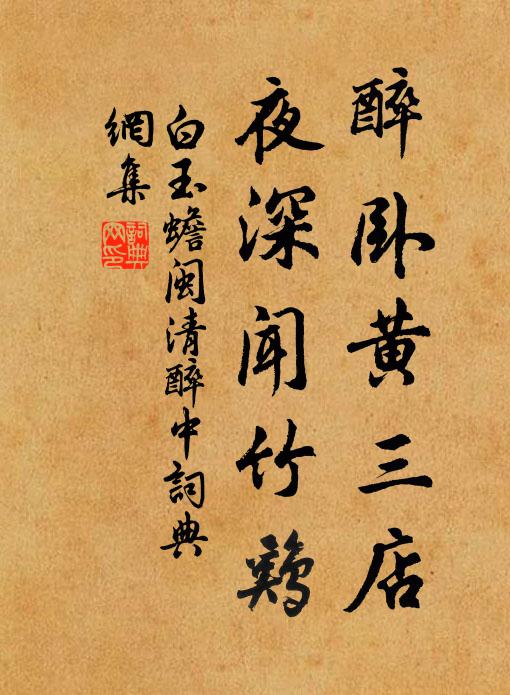 醉卧黄三店
夜深闻竹鸡
白玉蟾闽清醉中词典
網集
词典
网印